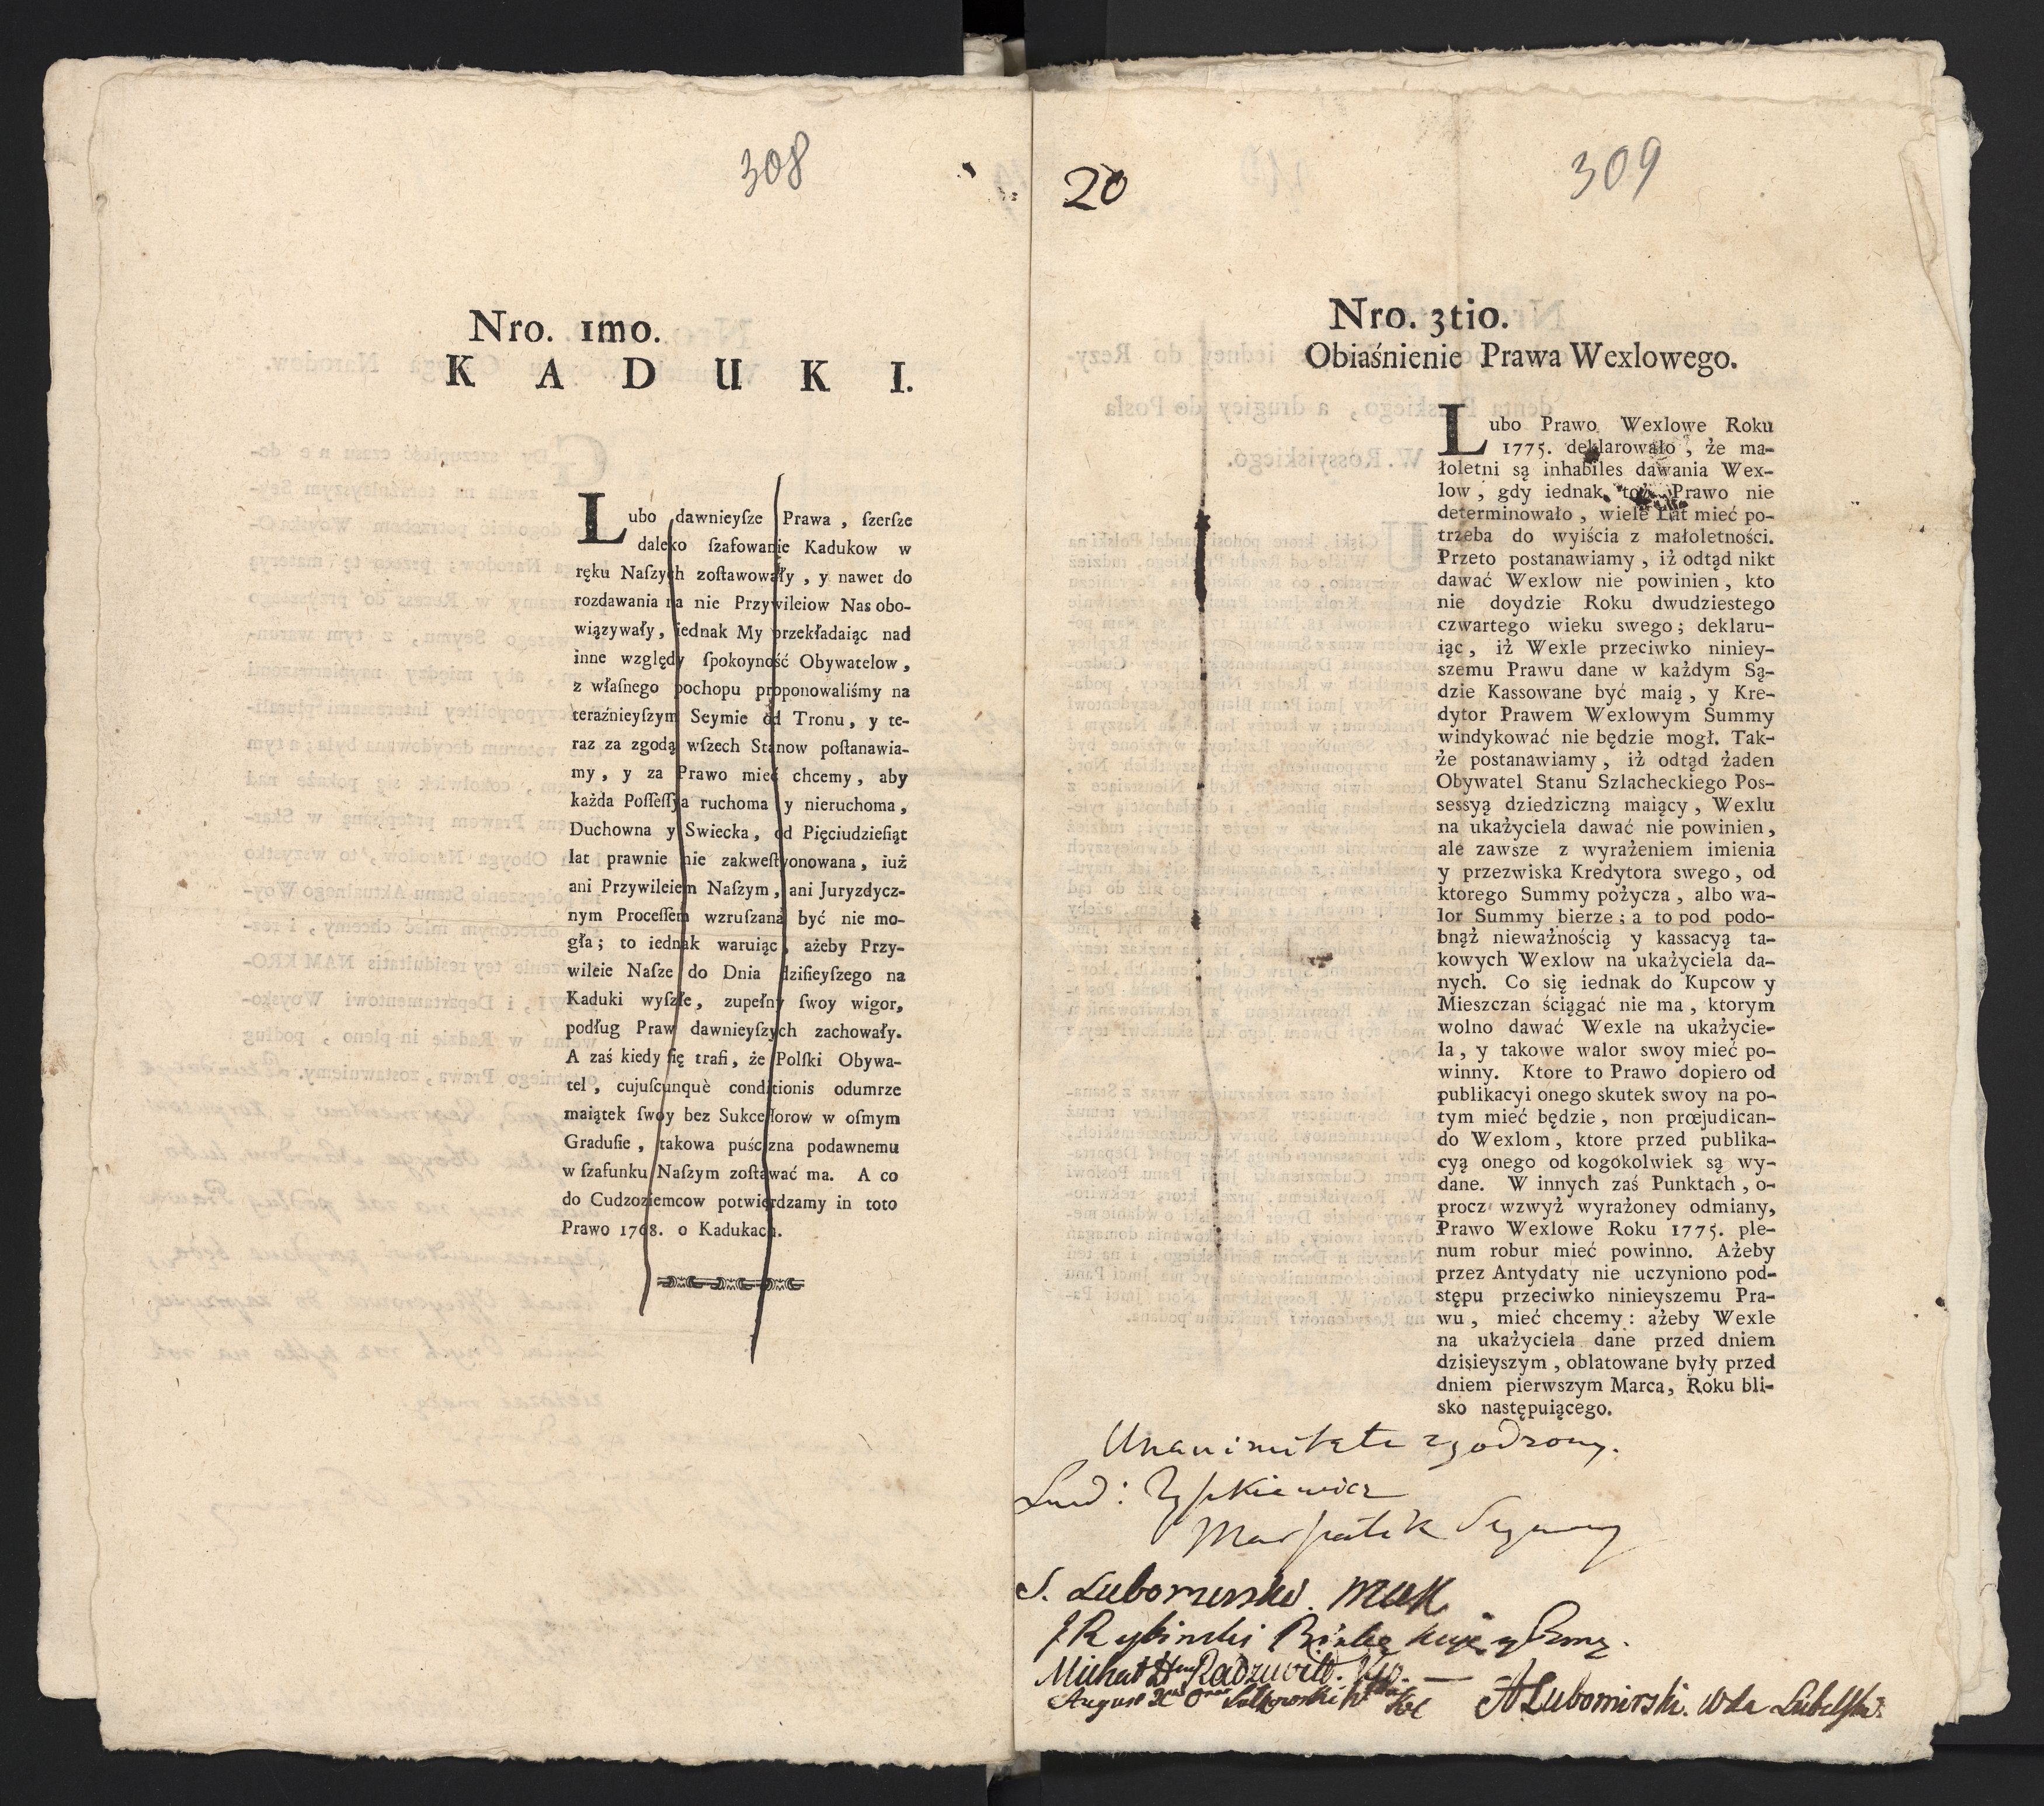 308
Nro. 1mo.
KADUKI.
Lubo dawnieyſze Prawa, ſzerſze
daleko ſzafowanie Kadukow w
ręku Naſzych zoſtawowały, y nawet do
rozdawania na nie Przywileiow Nas obo-
wiązywały, iednak My przekładaiąc nad
inne względy ſpokoyność Obywatelow,
z właſnego pochopu proponowaliśmy na
teraźnieyſzym Seymie od Tronu, y te-
raz za zgodą wſzech Stanow poſtanawia-
my, y za Prawo mieć chcemy, aby
każda Poſſeſſya ruchoma y nieruchoma,
Duchowna y Swiecka, od Pięciudzieſiąt
lat prawnie nie zakweſtyonowana, iuż
ani Przywileiem Naſzym, ani Juryzdycz-
nym Proceſſem wzruſzana być nie mo-
gła; to iednak waruiąc, ażeby Przy-
wileie Naſze do Dnia dziſieyſzego na
Kaduki wyſzłe, zupełny ſwoy wigor,
podług Praw dawnieyſzych zachowały.
A zaś kiedy ſię trafi, że Polſki Obywa-
tel, cujuſcunquè conditionis odumrze
maiątek ſwoy bez Sukceſſorow w oſmym
Graduſie, takowa puścizna podawnemu
w ſzafunku Naſzym zoſtawać ma. A co
do Cudzoziemcow potwierdzamy in toto
Prawo 1768. o Kadukach.
20
309
Nro. 3tio.
Obiaśnienie Prawa Wexlowego.
Lubo Prawo Wexlowe Roku
1775. deklarowało, że ma-
łoletni są inhabiles dawania Wex-
low, gdy iednak toż Prawo nie
determinowało, wiele Lat mieć po-
trzeba do wyiścia z małoletności.
Przeto postanawiamy, iż odtąd nikt
dawać Wexlow nie powinien, kto
nie doydzie Roku dwudziestego
czwartego wieku swego; deklaru-
iąc, iż Wexle przeciwko niniey-
szemu Prawu dane w każdym Są-
dzie Kassowane być maią, y Kre-
dytor Prawem Wexlowym Summy
windykować nie będzie mogł. Tak-
że postanawiamy, iż odtąd żaden
Obywatel Stanu Szlacheckiego Pos-
sessyą dziedziczną maiący, Wexlu
na ukażyciela dawać nie powinien,
ale zawsze z wyrażeniem imienia
y przezwiska Kredytora swego, od
ktorego Summy pożycza, albo wa-
lor Summy bierze; a to pod podo-
bnąż nieważnością y kassacyą ta-
kowych Wexlow na ukażyciela da-
nych. Co się iednak do Kupcow y
Mieszczan ściągać nie ma, ktorym
wolno dawać Wexle na ukażycie-
la, y takowe walor swoy mieć po-
winny. Ktore to Prawo dopiero od
publikacyi onego skutek swoy na po-
tym mieć będzie, non præjudican-
do Wexlom, ktore przed publika-
cyą onego od kogokolwiek są wy-
dane. W innych zaś Punktach, o-
procz wzwyż wyrażoney odmiany,
Prawo Wexlowe Roku 1775. ple-
num robur mieć powinno. Ażeby
przez Antydaty nie uczyniono pod-
stępu przeciwko ninieyszemu Pra-
wu, mieć chcemy: ażeby Wexle
na ukażyciela dane przed dniem
dzisieyszym, oblatowane były przed
dniem pierwszym Marca, Roku bli-
sko następuiącego.
Unanimitate zgodzony.
Lud: Tyszkiewicz
Marszałek Seymowy
S. Lubomirski. MWK
J Rybiński Biskup Kuja: y Pom:
Michał Radziwiłł
August Sułkowski
A Lubomirski. Wda Lubelski